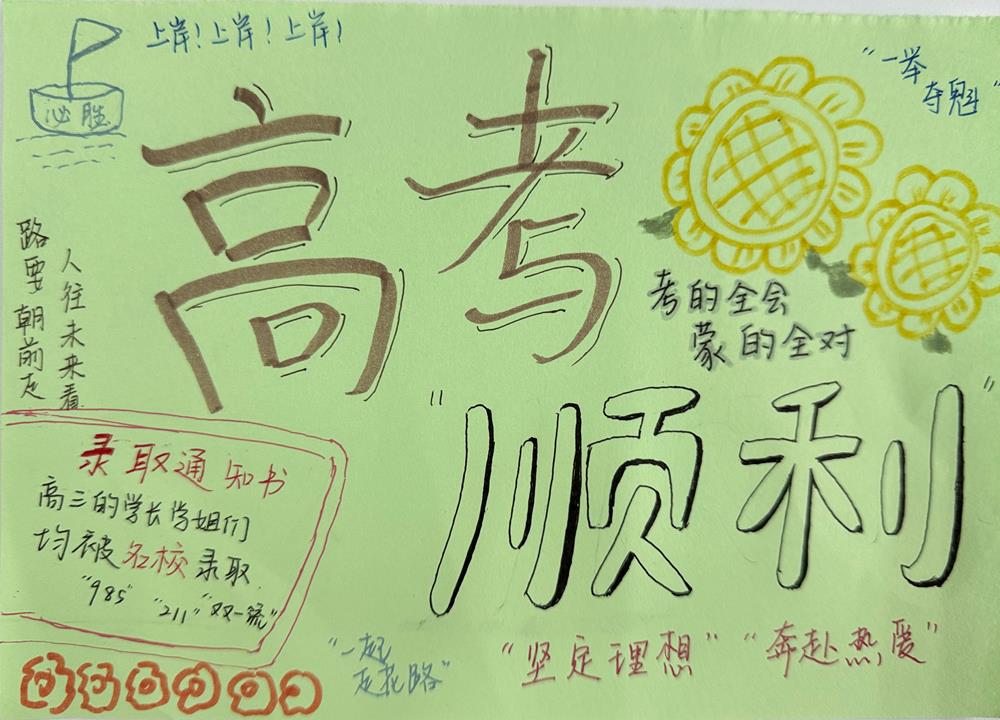 上岸！上岸！上岸！
必胜
高考
"一举
夺魁"
路要朝前走
人往未来看
考的全会
蒙的全对
"顺利"
录取通知书
高三的学长学姐们
均被名校录取
"985" "211" "双一流"
"一起
走花路"
"坚定理想" "奔赴热爱"